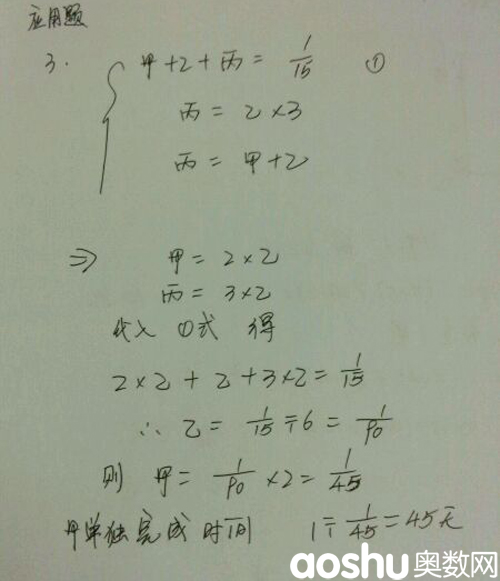 应用题
3. 甲+乙+丙= 1/15 ①
丙= 乙×3
丙= 甲+乙
⇒ 甲= 2×乙
丙= 3×乙
代入 ①式 得
2×乙+乙+3×乙= 1/15
∴ 乙= 1/15÷6= 1/90
则 甲= 1/90×2= 1/45
甲单独完成时间 1÷1/45=45天
aoshu奥数网